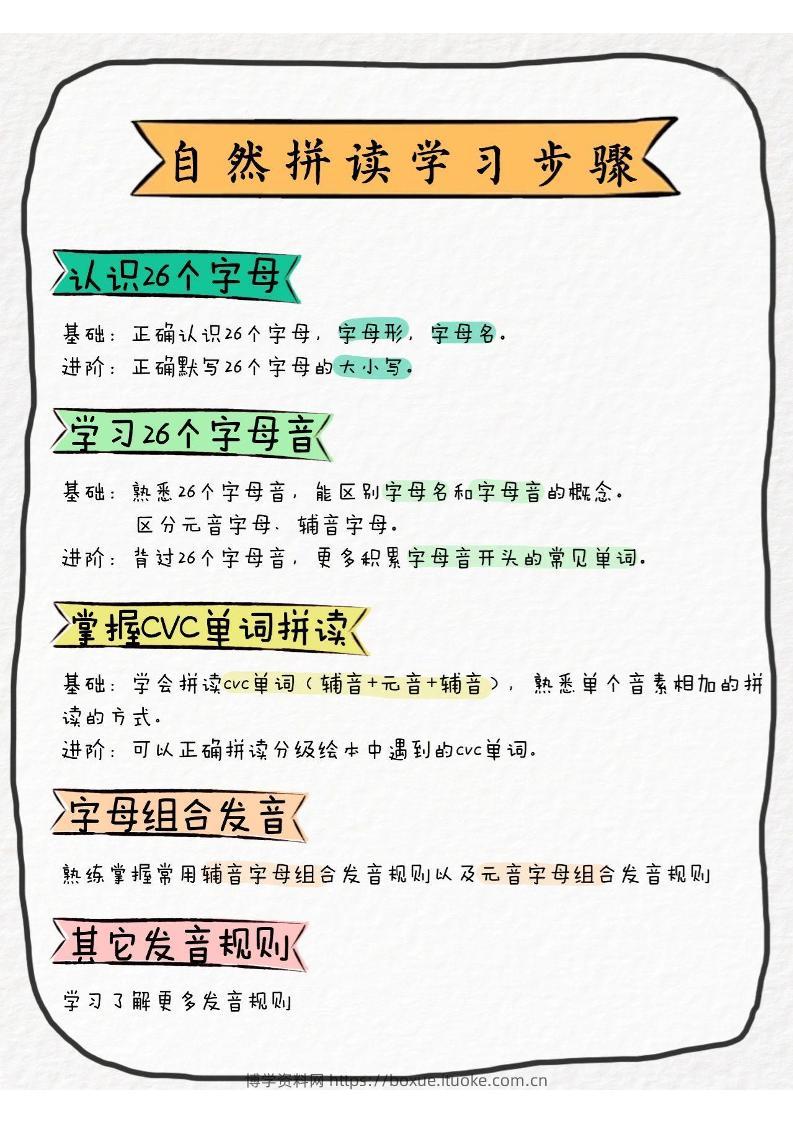 自然拼读学习步骤
认识26个字母
基础：正确认识26个字母，字母形，字母名。
进阶：正确默写26个字母的大小写。
学习26个字母音
基础：熟悉26个字母音，能区别字母名和字母音的概念。
区分元音字母、辅音字母。
进阶：背过26个字母音，更多积累字母音开头的常见单词。
掌握CVC单词拼读
基础：学会拼读cvc单词（辅音+元音+辅音），熟悉单个音素相加的拼
读的方式。
进阶：可以正确拼读分级绘本中遇到的cvc单词。
字母组合发音
熟练掌握常用辅音字母组合发音规则以及元音字母组合发音规则
其它发音规则
学习了解更多发音规则
博学资料网 https://boxue.ituoke.com.cn